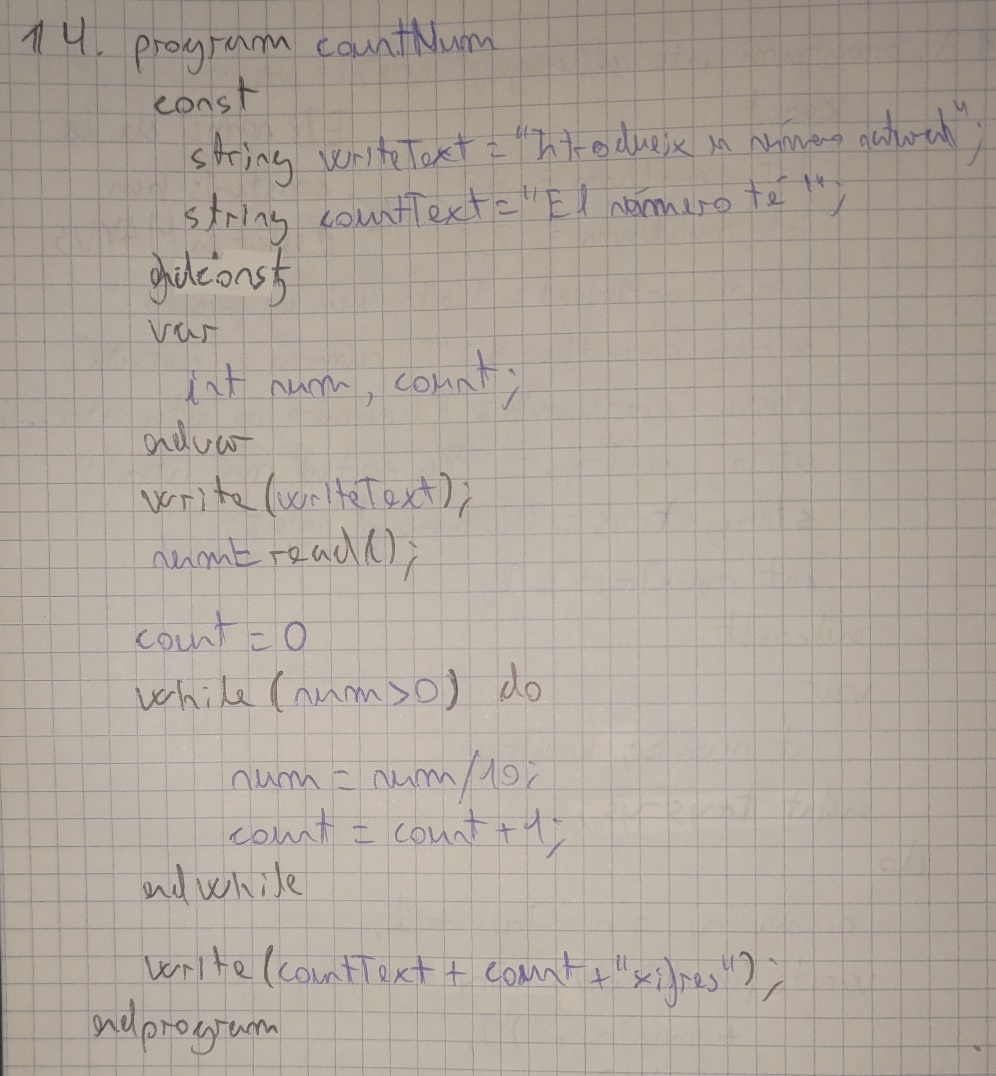 14. program countNum
const
string writeText = "Introdueix un número natural";
string countText = "El número té ";
endconst
var
int num, count;
endvar
write(writeText);
num = read();
count = 0
while (num>0) do
num = num/10;
count = count + 1;
endwhile
write(countText + count + "xifres");
endprogram